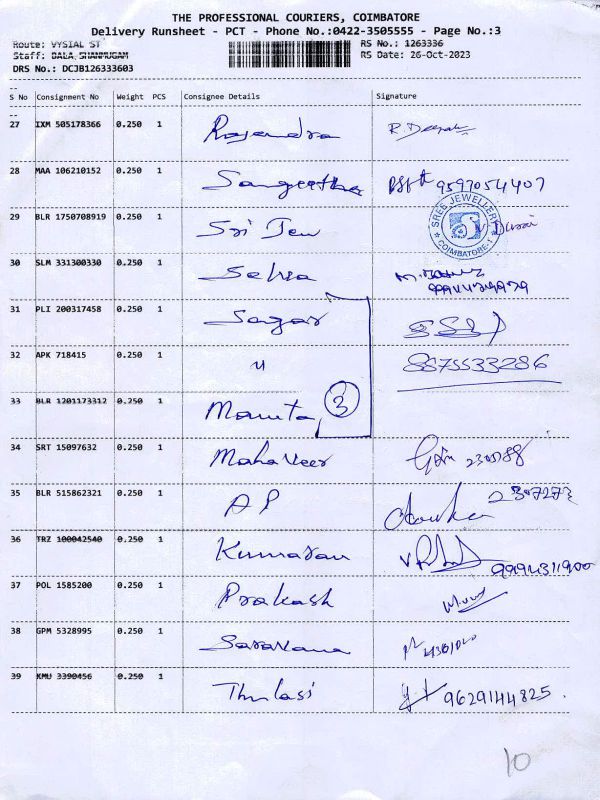 THE PROFESSIONAL COURIERS, COIMBATORE
Delivery Runsheet - PCT - Phone No.:0422-3505555 - Page No.:3
Route: VYSIAL ST RS No.: 1263336
Staff: BALA, SHANMUGAM RS Date: 26-Oct-2023
DRS No.: DCJB126333603
S No Consignment No Weight PCS Consignee Details Signature
27 IXM 505178366 0.250 1 Rajendra R. Deepak
28 MAA 106210152 0.250 1 Sangeetha 9597054407
29 BLR 1750708919 0.250 1 Sri Jew
SREE JEWELLERY
COIMBATORE-1
30 SLM 331300330 0.250 1
31 PLI 200317458 0.250 1 Sagar
32 APK 718415 0.250 1 " 8875533286
33 BLR 1201173312 0.250 1 Mamta 3
34 SRT 15097632 0.250 1 Mahaveer
35 BLR 515862321 0.250 1 AP 2307273
36 TRZ 100042540 0.250 1 Kumaran 9994311900
37 POL 1585200 0.250 1 Prakash
38 GPM 5328995 0.250 1 Saravana
39 KMU 3390456 0.250 1 Thulasi 9629144825.
10